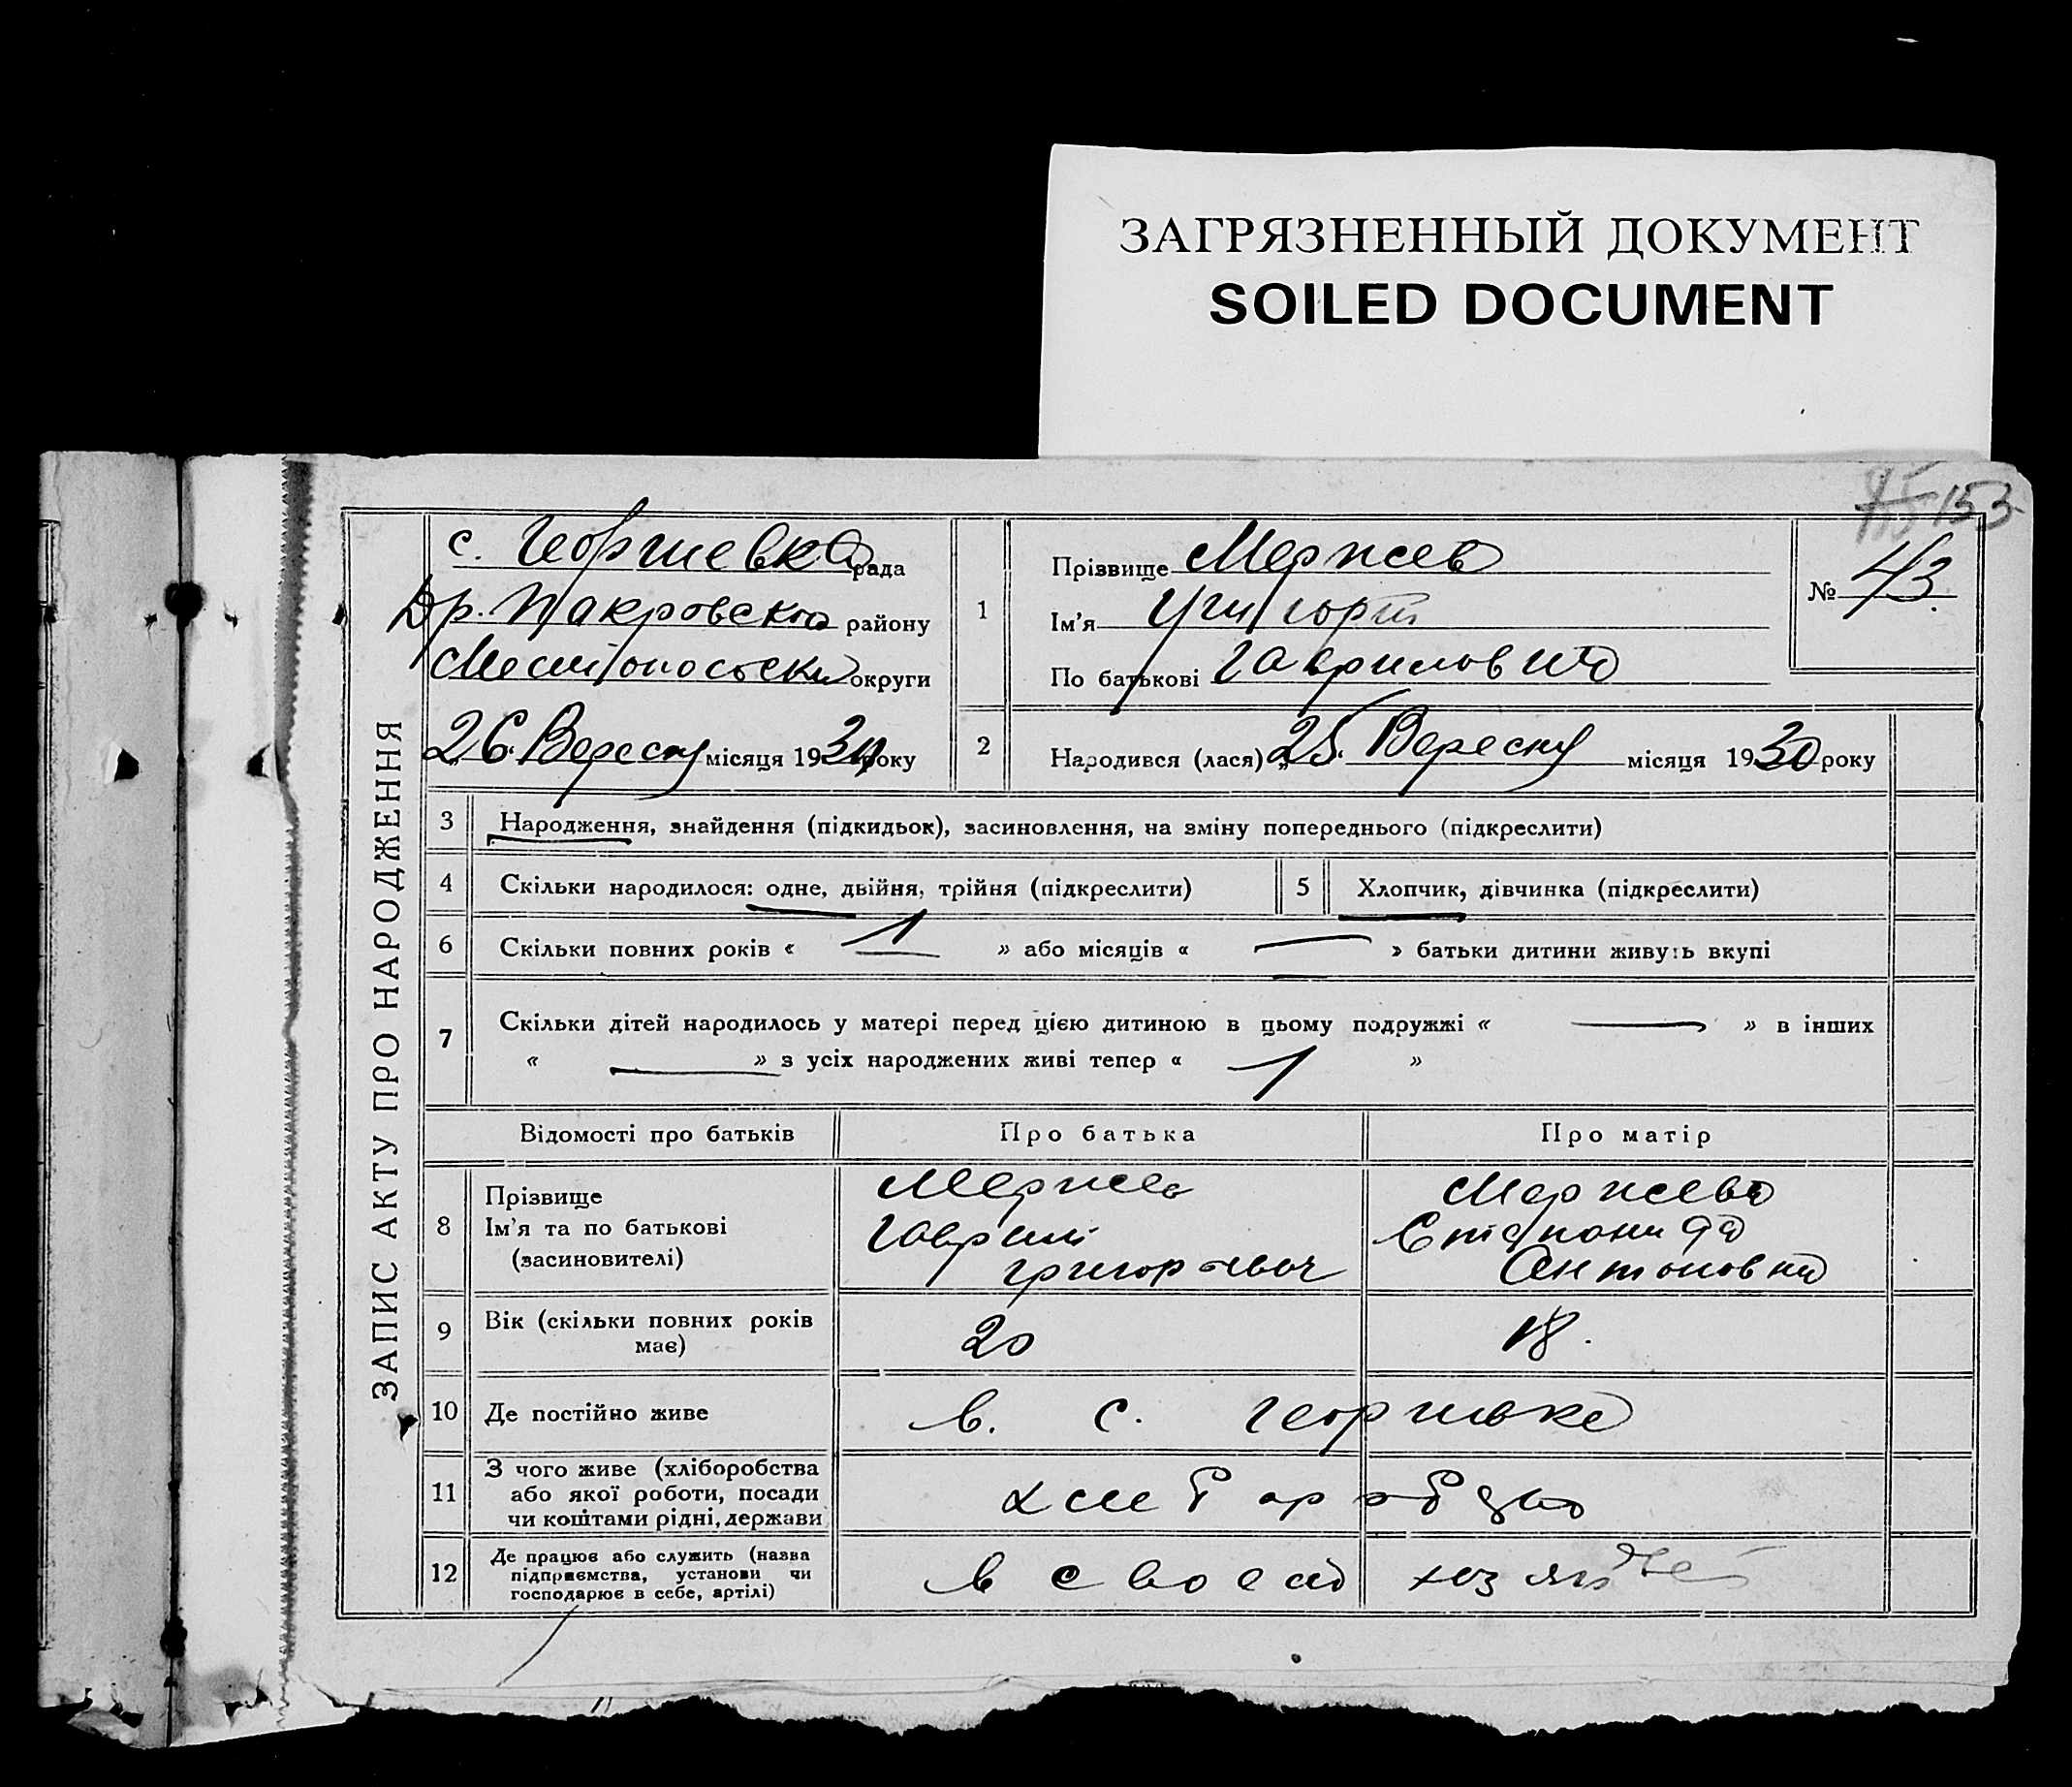 ЗАГРЯЗНЕННЫЙ ДОКУМЕНТ
SOILED DOCUMENT
153
ЗАПИС АКТУ ПРО НАРОДЖЕННЯ
с. рада
району
округи
26. Вересня місяця 1930 року
1
Прізвище Мержев
Ім'я
По батькові Гаврилович
№ 43.
2
Народився (лася) „25“ Вересня місяця 1930 року
3 Народження, знайдення (підкидьок), засиновлення, на зміну попереднього (підкреслити)
4 Скільки народилося: одне, двійня, трійня (підкреслити)
5 Хлопчик, дівчинка (підкреслити)
6 Скільки повних років « 1 » або місяців « — » батьки дитини живуть вкупі
7 Скільки дітей народилось у матері перед цією дитиною в цьому подружжі « — » в інших
« — » з усіх народжених живі тепер « 1 »
Відомості про батьків Про батька Про матір
8
Прізвище Мержев Мержева
Ім'я та по батькові Гаврил
(засиновителі) Григорович Антоновна
9 Вік (скільки повних років має) 20 18.
10 Де постійно живе в. с.
11 З чого живе (хліборобства
або якої роботи, посади
чи коштами рідні, держави
12 Де працює або служить (назва
підприємства, установи чи
господарює в себе, артілі)
в своем